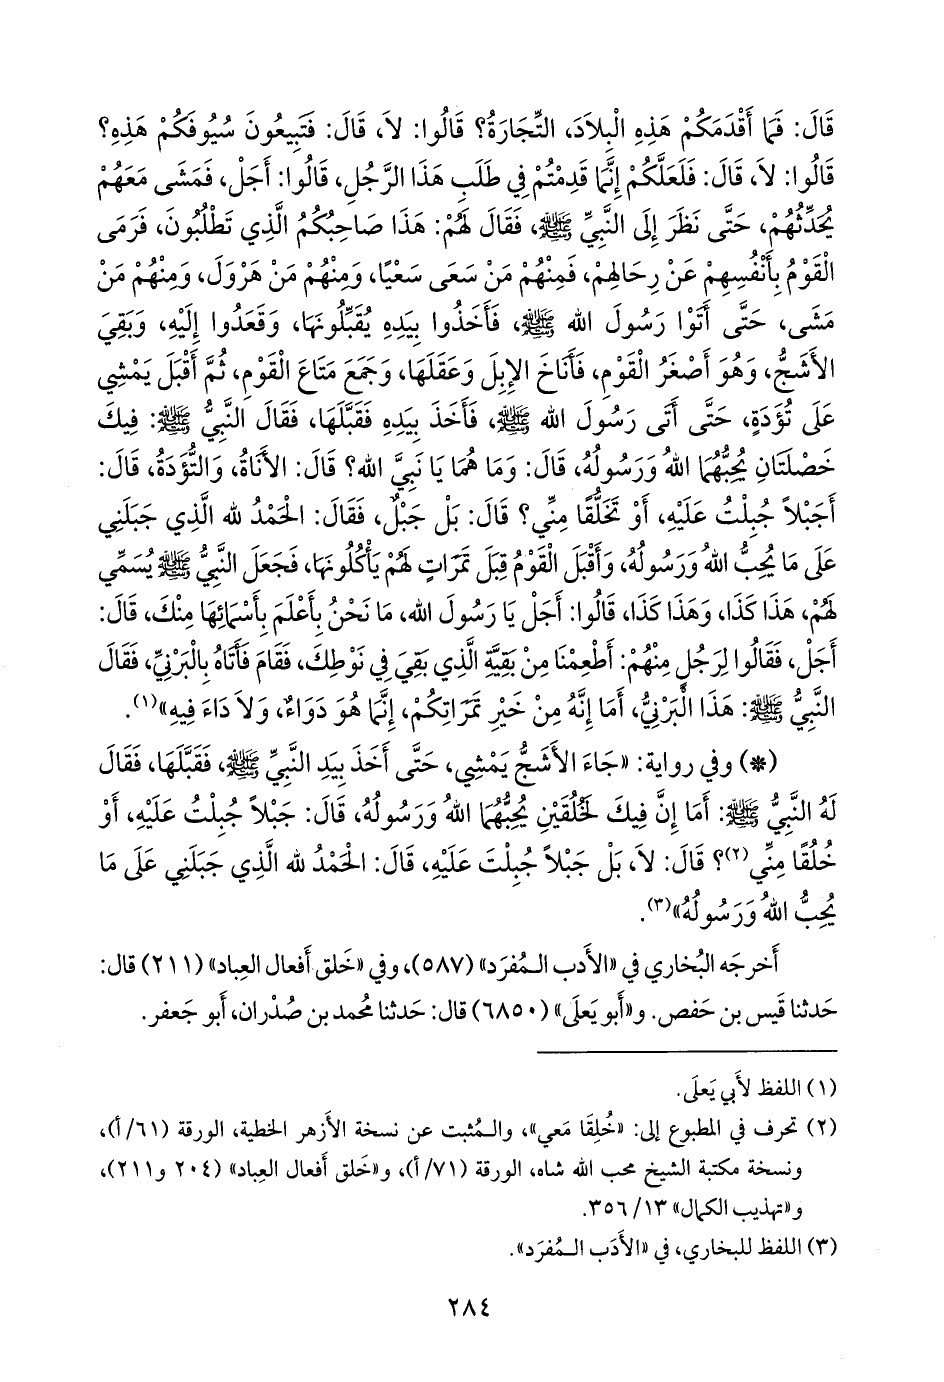 قَالَ: فَمَا أَقْدَمَكُمْ هَذِهِ الْبِلاَدَ، التِّجَارَةُ؟ قَالُوا: لاَ، قَالَ: فَتَبِيعُونَ سُيُوفَكُمْ هَذِهِ؟
قَالُوا: لاَ، قَالَ: فَلَعَلَّكُمْ إِنَّمَا قَدِمْتُمْ فِي طَلَبِ هَذَا الرَّجُلِ، قَالُوا: أَجَلْ، فَمَشَى مَعَهُمْ
يُحَدِّثُهُمْ، حَتَّى نَظَرَ إِلَى النَّبِيِّ ﷺ، فَقَالَ لَهُمْ: هَذَا صَاحِبُكُمُ الَّذِي تَطْلُبُونَ، فَرَمَى
الْقَوْمُ بِأَنْفُسِهِمْ عَنْ رِحَالِهِمْ، فَمِنْهُمْ مَنْ سَعَى سَعْيًا، وَمِنْهُمْ مَنْ هَرْوَلَ، وَمِنْهُمْ مَنْ
مَشَى، حَتَّى أَتَوْا رَسُولَ الله ﷺ، فَأَخَذُوا بِيَدِهِ يُقَبِّلُونَهَا، وَقَعَدُوا إِلَيْهِ، وَبَقِيَ
الأَشَجُّ، وَهُوَ أَصْغَرُ الْقَوْمِ، فَأَنَاخَ الإِبِلَ وَعَقَلَهَا، وَجَمَعَ مَتَاعَ الْقَوْمِ، ثُمَّ أَقْبَلَ يَمْشِي
عَلَى تُؤَدَةٍ، حَتَّى أَتَى رَسُولَ الله ﷺ، فَأَخَذَ بِيَدِهِ فَقَبَّلَهَا، فَقَالَ النَّبِيُّ ﷺ: فِيكَ
خَصْلَتَانِ يُحِبُّهُمَا اللهُ وَرَسُولُهُ، قَالَ: وَمَا هُمَا يَا نَبِيَّ الله؟ قَالَ: الأَنَاةُ، وَالتُّؤَدَةُ، قَالَ:
أَجَبْلاً جُبِلْتُ عَلَيْهِ، أَوْ تَخَلُّقًا مِنِّي؟ قَالَ: بَلْ جَبْلٌ، فَقَالَ: الحَمْدُ لله الَّذِي جَبَلَنِي
عَلَى مَا يُحِبُّ اللهُ وَرَسُولُهُ، وَأَقْبَلَ الْقَوْمُ قِبَلَ تَمَرَاتٍ لَهُمْ يَأْكُلُونَهَا، فَجَعَلَ النَّبِيُّ ﷺ يُسَمِّي
لَهُمْ، هَذَا كَذَا، وَهَذَا كَذَا، قَالُوا: أَجَلْ يَا رَسُولَ الله، مَا نَحْنُ بِأَعْلَمَ بِأَسْمَائِهَا مِنْكَ، قَالَ:
أَجَلْ، فَقَالُوا لِرَجُلٍ مِنْهُمْ: أَطْعِمْنَا مِنْ بَقِيَّةِ الَّذِي بَقِيَ فِي نَوْطِكَ، فَقَامَ فَأَتَاهُ بِالْبَرْنِيِّ، فَقَالَ
النَّبِيُّ ﷺ: هَذَا الْبَرْنِيُّ، أَمَا إِنَّهُ مِنْ خَيْرِ تَمَرَاتِكُمْ، إِنَّمَا هُوَ دَوَاءٌ، وَلاَ دَاءَ فِيهِ»(١).
(*) وفي رواية: «جَاءَ الأَشَجُّ يَمْشِي، حَتَّى أَخَذَ بِيَدِ النَّبِيِّ ﷺ، فَقَبَّلَهَا، فَقَالَ
لَهُ النَّبِيُّ ﷺ: أَمَا إِنَّ فِيكَ لَخُلُقَيْنِ يُحِبُّهُمَا اللهُ وَرَسُولُهُ، قَالَ: جَبْلاً جُبِلْتُ عَلَيْهِ، أَوْ
خُلُقًا مِنِّي(٢)؟ قَالَ: لاَ، بَلْ جَبْلاً جُبِلْتَ عَلَيْهِ، قَالَ: الحَمْدُ لله الَّذِي جَبَلَنِي عَلَى مَا
يُحِبُّ اللهُ وَرَسُولُهُ»(٣).
أَخرجَه البُخاري في «الأَدب المُفرَد» (٥٨٧)، وفي «خَلق أَفعال العِباد» (٢١١) قال:
حَدثنا قَيس بن حَفص. و«أَبو يَعلَى» (٦٨٥٠) قال: حَدثنا مُحمد بن صُدْران، أَبو جَعفر.
(١) اللفظ لأَبي يَعلَى.
(٢) تحرف في المطبوع إلى: «خُلِقَا مَعي»، والمُثبت عن نسخة الأزهر الخطية، الورقة (٦١/أ)،
ونسخة مكتبة الشيخ محب الله شاه، الورقة (٧١/أ)، و«خَلق أفعال العِباد» (٢٠٤ و٢١١)،
و«تهذيب الكمال» ١٣/ ٣٥٦.
(٣) اللفظ للبخاري، في «الأَدَب المُفرَد».
٢٨٤